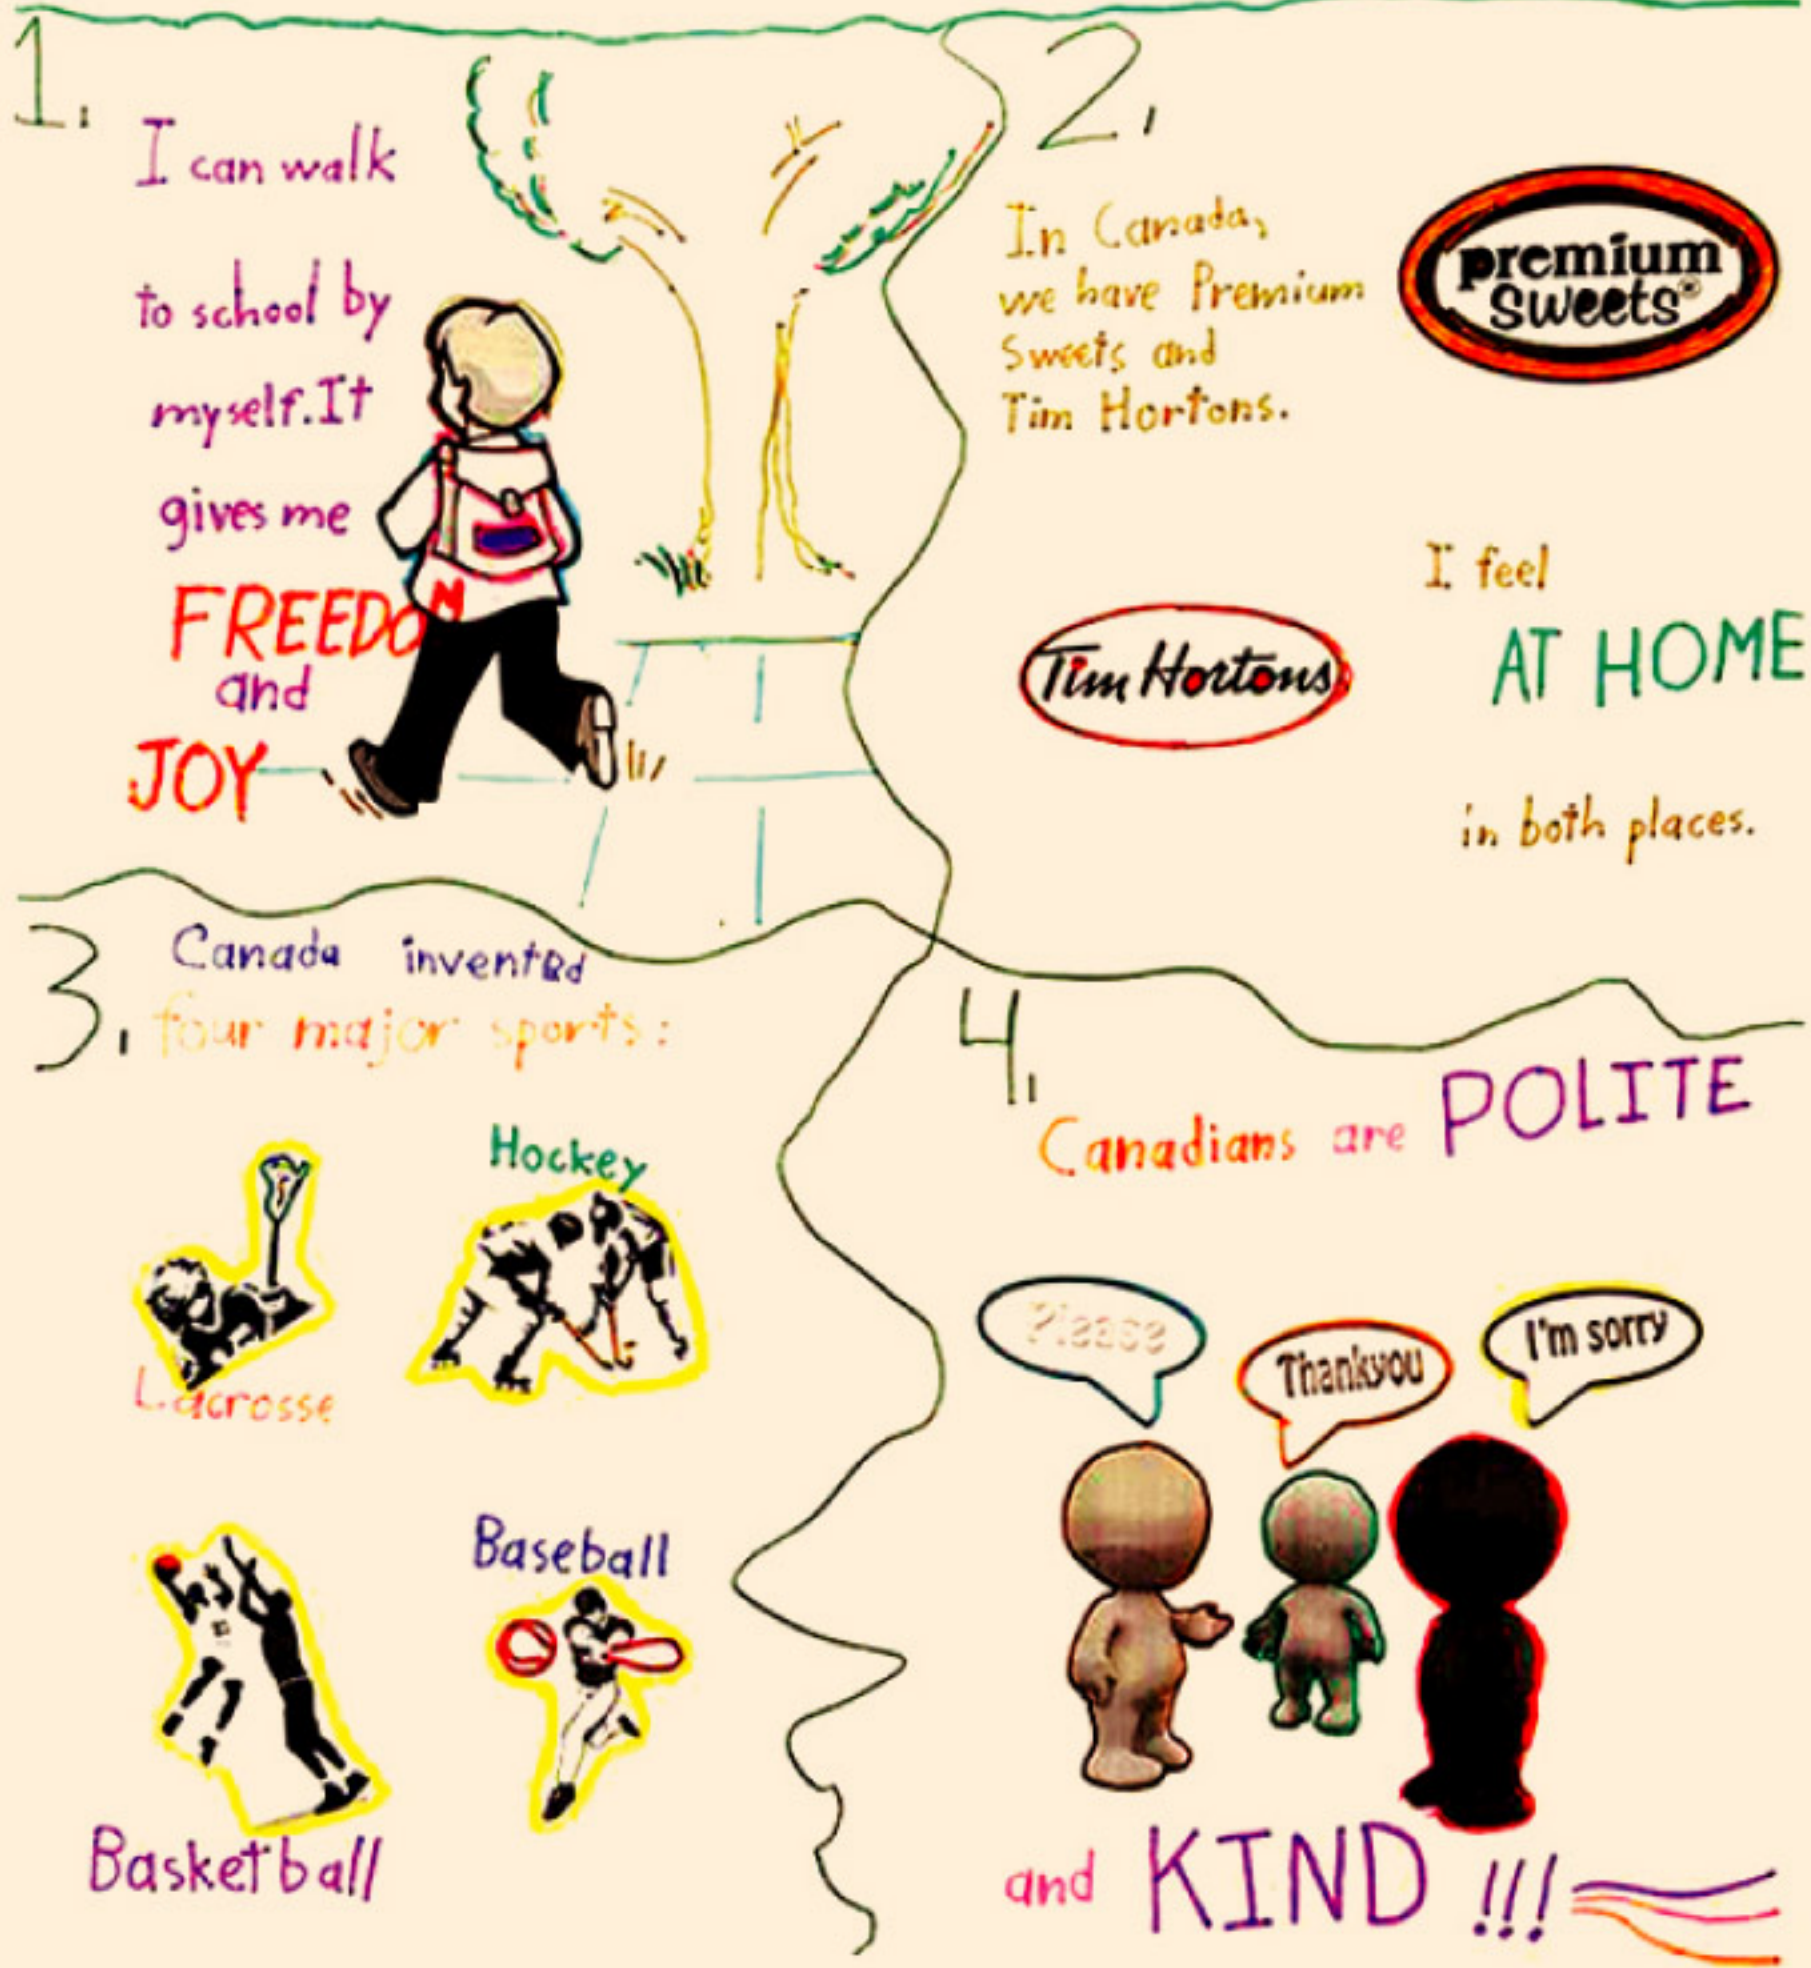 1.
I can walk
to school by
myself. It
gives me
FREEDOM
and
JOY
2.
In Canada,
we have Premium
Sweets and
Tim Hortons.
premium
sweets®
Tim Hortons
I feel
AT HOME
in both places.
3.
Canada invented
four major sports:
Lacrosse
Hockey
Basketball
Baseball
4.
Canadians are POLITE
Please
Thankyou
I'm sorry
and KIND !!!